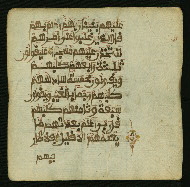 عليهم بنينا ربهم اعلم بهم
قال الذين غلبوا على امرهم
لنتخذن عليهم مسجدا سيقولون
ثلثة رابعهم كلبهم
ويقولون خمسة سادسهم
كلبهم رجما بالغيب ويقولون
سبعة وثامنهم كلبهم
قل ربي اعلم بعدتهم ما
يعلمهم الا قليل فلا تمار
فيهم